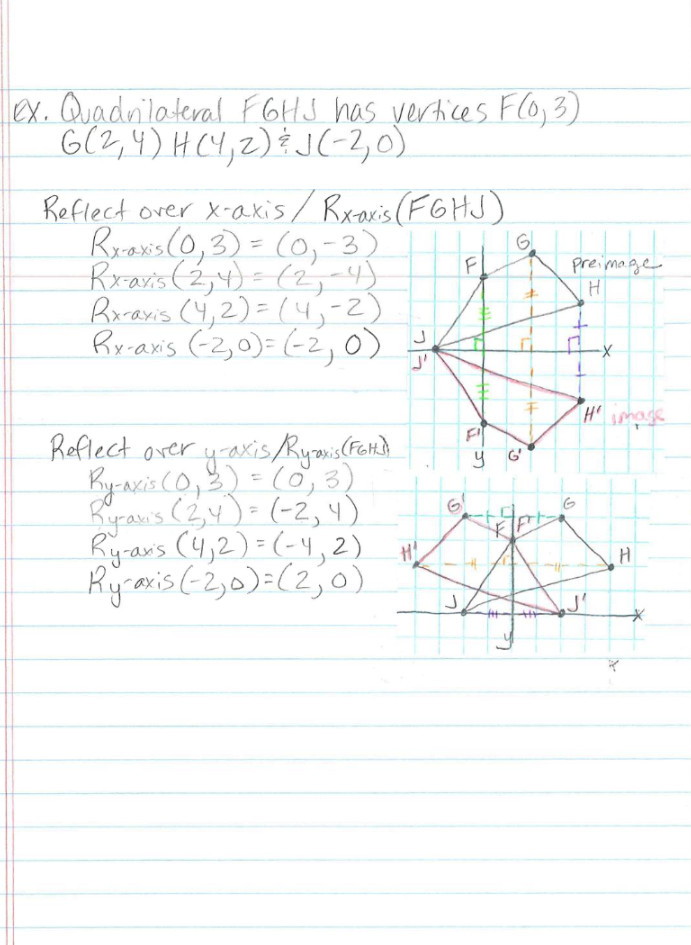 Ex. Quadrilateral FGHJ has vertices F(0,3)
G(2,4) H(4,2) & J(-2,0)
Reflect over x-axis / Rx-axis(FGHJ)
Rx-axis(0,3) = (0,-3)
Rx-axis(2,4) = (2,-4)
Rx-axis (4,2) = (4,-2)
Rx-axis (-2,0) = (-2, 0)
G
F
preimage
H
J
J'
x
H' image
F'
y
G'
Reflect over y-axis/Ry-axis(FGHJ)
Ry-axis(0,3) = (0, 3)
Ry-axis (2,4) = (-2, 4)
Ry-axis (4,2) = (-4, 2)
Ry-axis (-2,0) = (2, 0)
G'
G
F F'
H'
H
J
J'
x
y